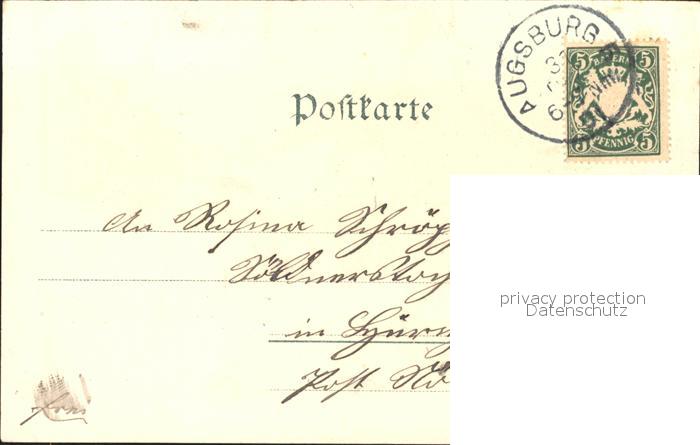 AUGSBURG
5 BAYERN 5
5 PFENNIG 5
Postkarte
An Rosina Schröp
Söldnerstoch
in
Post Nö
privacy protection
Datenschutz